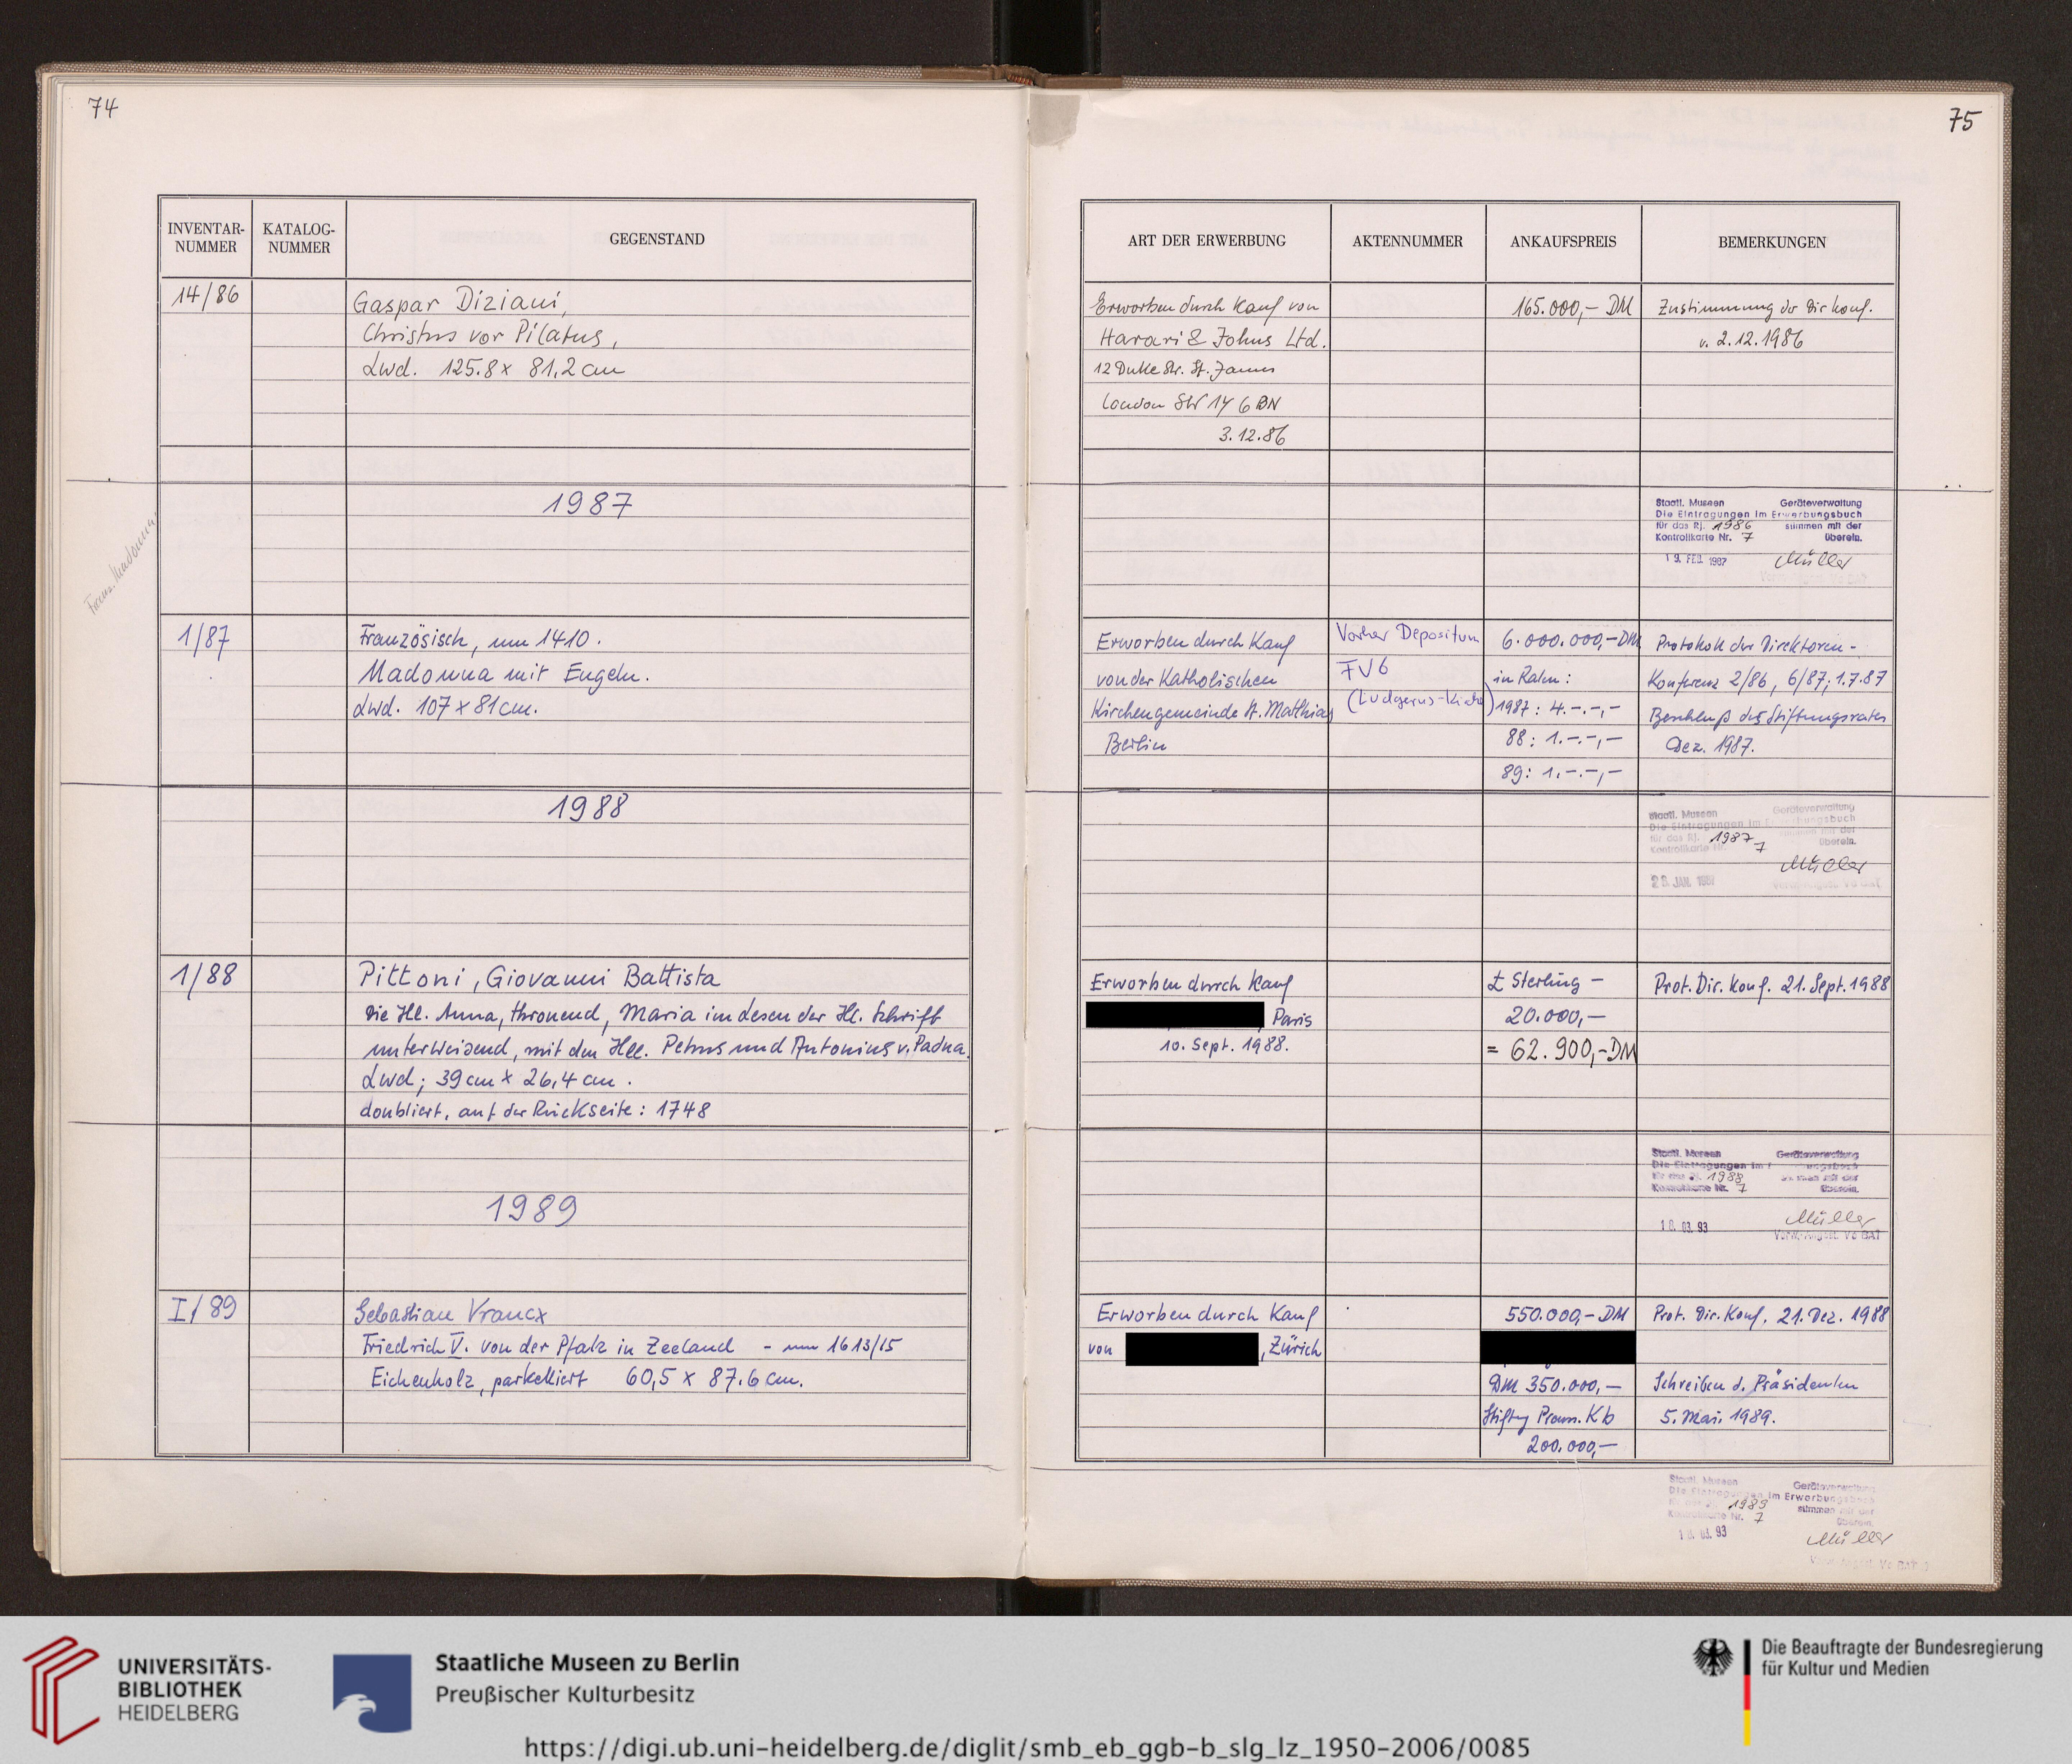 74
INVENTAR-
NUMMER
KATALOG-
NUMMER
GEGENSTAND
14/86
Gaspar Diziani,
Christus vor Pilatus,
Lwd. 125.8 x 81,2 cm
1987
1/87
Französisch, um 1410.
Madonna mit Engeln.
Lwd. 107 x 81 cm.
1988
1/88
Pittoni, Giovanni Battista
Die Hl. Anna, thronend, Maria im Lesen der Hl. Schrift
unterweisend, mit den Hll. Petrus und Antonius v. Padua.
Lwd; 39 cm x 26,4 cm.
doubliert, auf der Rückseite: 1748
1989
I/89
Sebastian Vrancx
Friedrich V. von der Pfalz in Zeeland - um 1613/15
Eichenholz, parkettiert 60,5 x 87.6 cm.
75
ART DER ERWERBUNG
AKTENNUMMER
ANKAUFSPREIS
BEMERKUNGEN
Erworben durch Kauf von
Harari & Johns Ltd.
12 Duke Str. St. James
London SW 1Y 6 BN
3.12.86
165.000,- DM
Zustimmung der Dir konf.
v. 2.12.1986
Staatl. Museen Geräteverwaltung
Die Eintragungen im Erwerbungsbuch
für das Rj. 1986 stimmen mit der
Kontrollkarte Nr. 7 überein.
19. FEB. 1987 Müller
Erworben durch Kauf
von der Katholischen
Kirchengemeinde St. Mathias
Berlin
Vorher Depositum
FV6
(Ludgerus-Kirche)
6.000.000,- DM
in Raten:
1987: 4.-.-,-
88: 1.-.-,-
89: 1.-.-,-
Protokoll der Direktoren-
Konferenz 2/86, 6/87; 1.7.87
Beschluß des Stiftungsrates
Dez. 1987.
Staatl. Museen Geräteverwaltung
Die Eintragungen im Erwerbungsbuch
für das Rj. 1987 stimmen mit der
Kontrollkarte Nr. 7 überein.
Müller
28. JAN. 1987
Erworben durch Kauf
, Paris
10. Sept. 1988.
£ Sterling -
20.000,-
= 62.900,- DM
Prot. Dir. Konf. 21. Sept. 1988
Staatl. Museen Geräteverwaltung
Die Eintragungen im
für das Rj. 1988 stimmen mit der
Kontrollkarte Nr. 7 überein.
Müller
18. 03. 93
Erworben durch Kauf
von , Zürich
550.000,- DM
DM 350.000,-
Stiftg Preuss. Kb
200.000,-
Prot. Dir. Konf. 21. Dez. 1988
Schreiben d. Präsidenten
5. Mai 1989.
Staatl. Museen Geräteverwaltung
Die Eintragungen im Erwerbungsbuch
1989 stimmen mit der
Kontrollkarte Nr. 7 überein.
18. 03. 93
Müller
UNIVERSITÄTS-
BIBLIOTHEK
HEIDELBERG
Staatliche Museen zu Berlin
Preußischer Kulturbesitz
Die Beauftragte der Bundesregierung
für Kultur und Medien
https://digi.ub.uni-heidelberg.de/diglit/smb_eb_ggb-b_slg_lz_1950-2006/0085